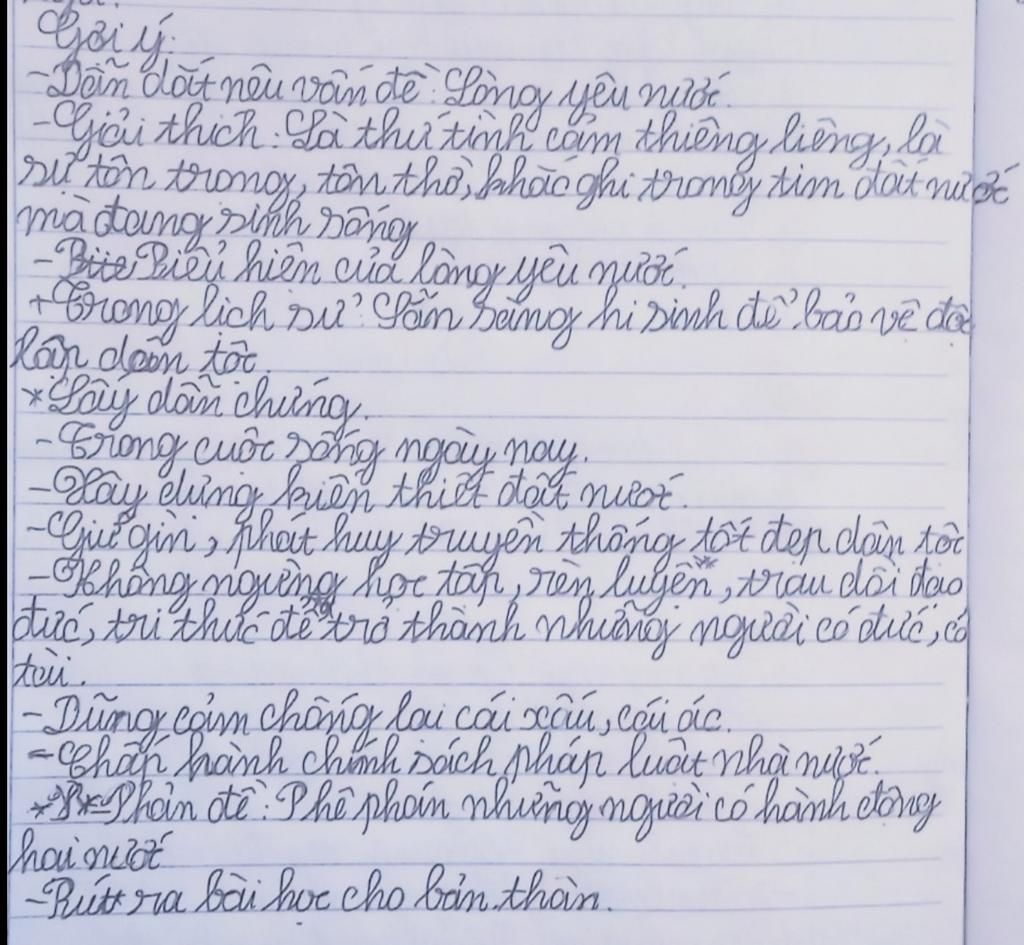 Gợi ý:
- Dẫn dắt nêu vấn đề: Lòng yêu nước.
- Giải thích: Là thứ tình cảm thiêng liêng, là
sự tôn trọng, tôn thờ, khắc ghi trong tim đất nước
mà đang sinh sống
- Biểu hiện của lòng yêu nước.
+ Trong lịch sử: Sẵn sàng hi sinh để bảo vệ độc
lập dân tộc.
* Lấy dẫn chứng.
- Trong cuộc sống ngày nay.
- Xây dựng kiến thiết đất nước.
- Giữ gìn, phát huy truyền thống tốt đẹp dân tộc
- Không ngừng học tập, rèn luyện, trau dồi đạo
đức, tri thức để trở thành những người có đức, có
tài.
- Dũng cảm chống lại cái xấu, cái ác.
- Chấp hành chính sách pháp luật nhà nước.
* Phản đề: Phê phán những người có hành động
hại nước
- Rút ra bài học cho bản thân.